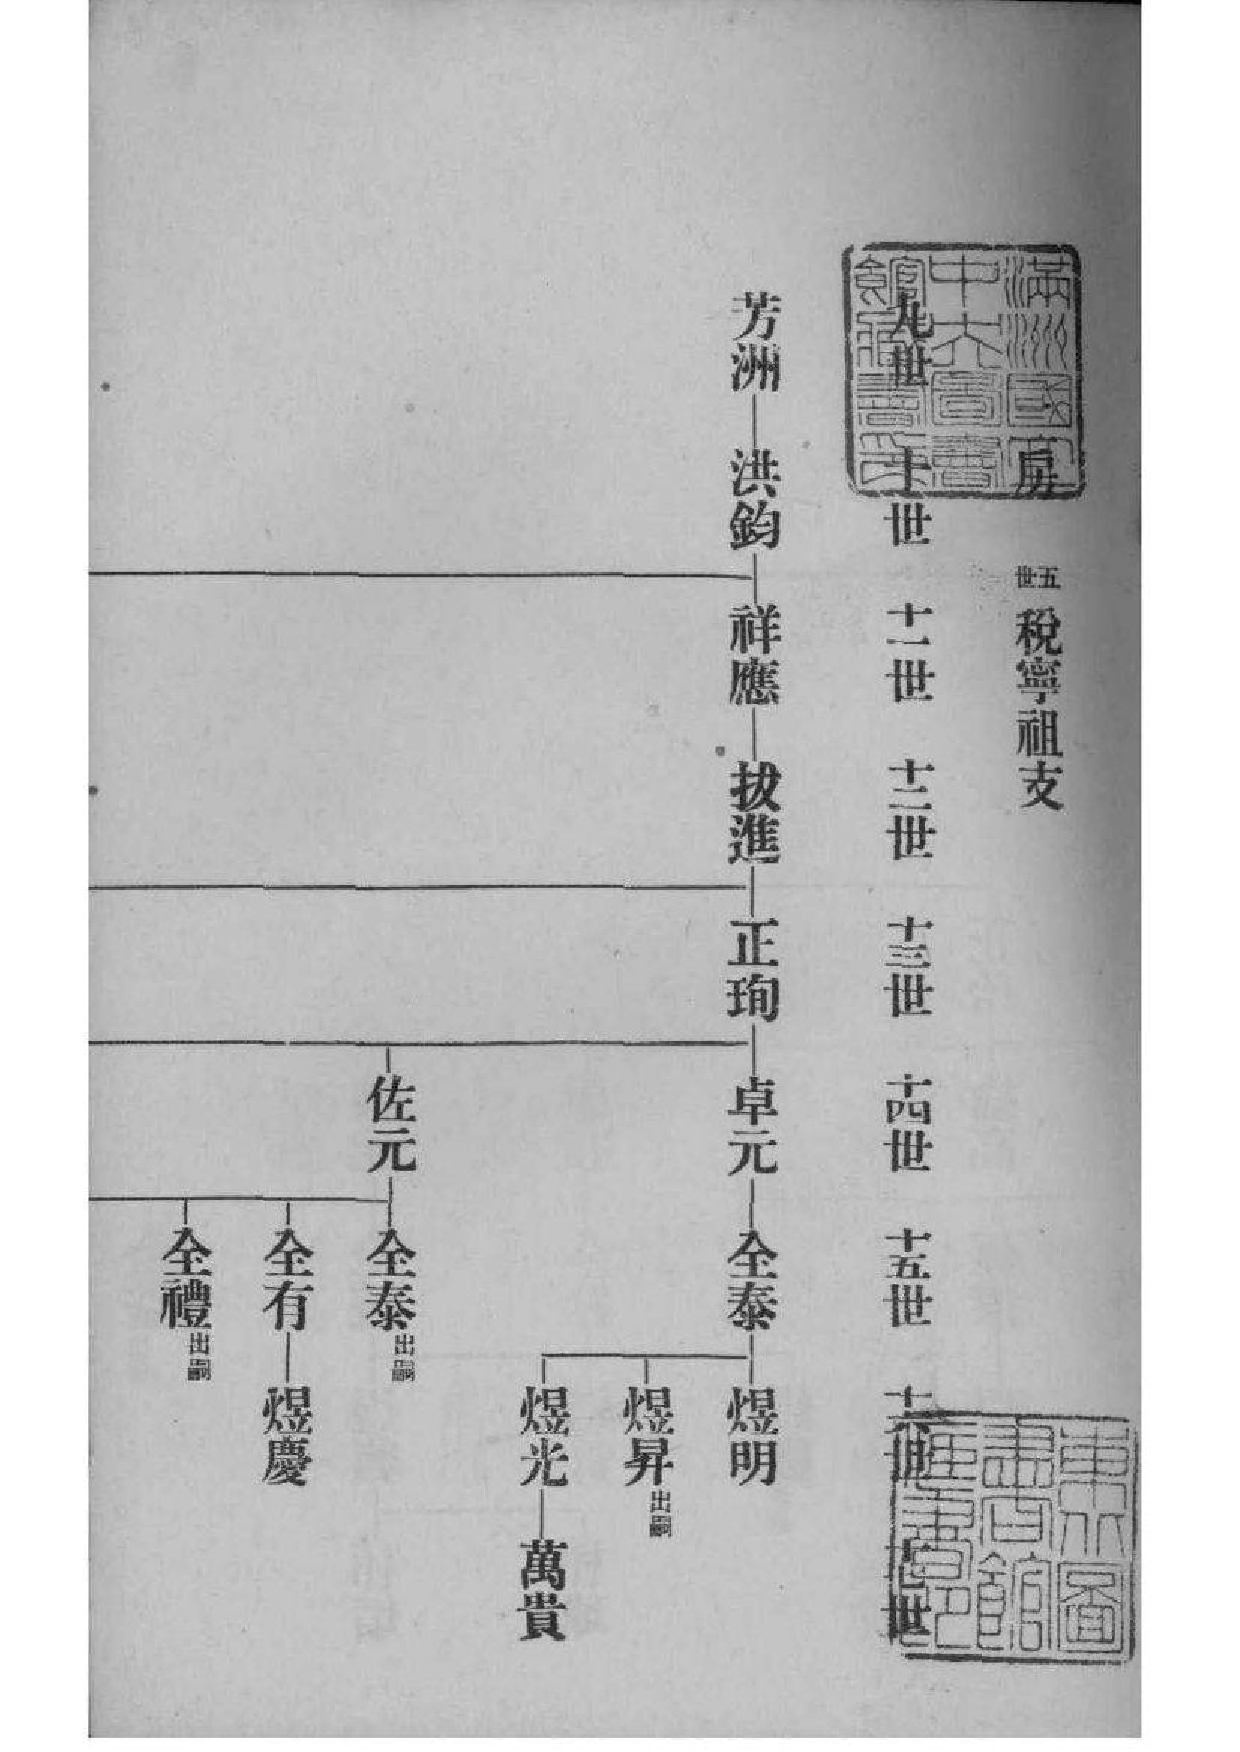 房 五世 稅寧祖支
九世 十世 十一世 十二世 十三世 十四世 十五世 十六世 十七世
芳洲 洪鈞 祥應 拔進 正珣 卓元 全泰 煜明
煜昇 出嗣
煜光 萬貴
佐元 全泰 出嗣
全有 煜慶
全禮 出嗣
滿洲國立
中央圖書
館籌備處
東北圖
書館